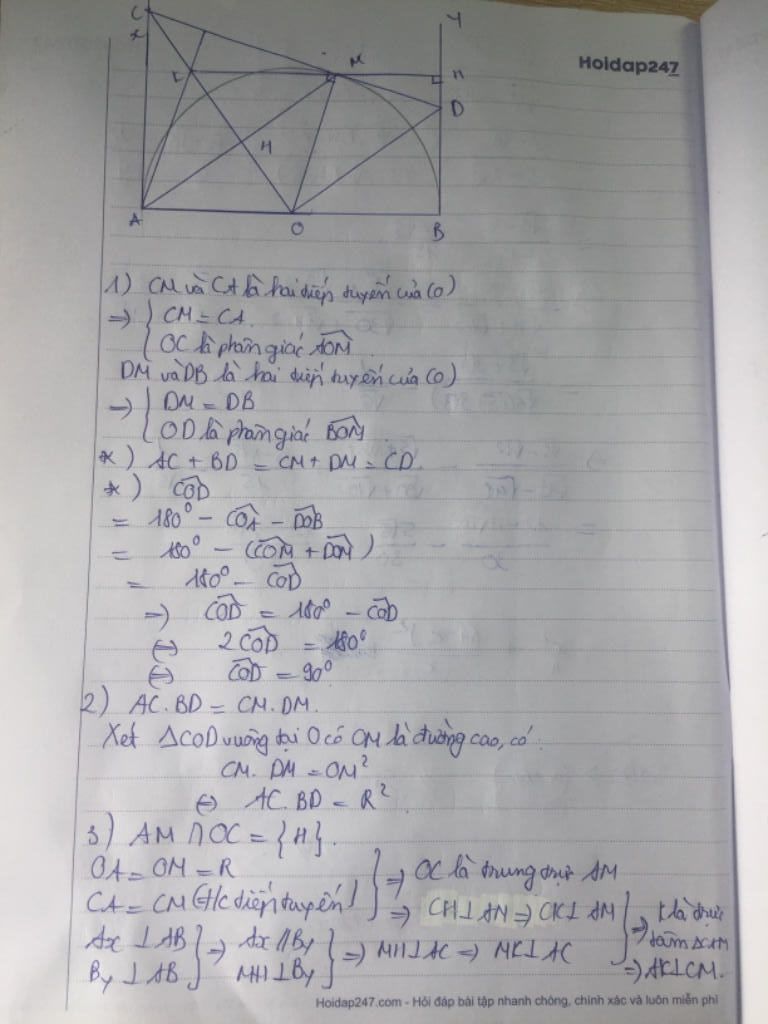 C
x
y
Hoidap247
K
M
H
D
H
A
O
B
1) CM và CA là hai tiếp tuyến của (O)
⇒ { CM = CA.
OC là phân giác \widehat{AOM}.
DM và DB là hai tiếp tuyến của (O)
⇒ { DM = DB
OD là phân giác \widehat{BOM}.
*) AC + BD = CM + DM = CD.
*) \widehat{COD}
= 180° - \widehat{COA} - \widehat{DOB}
= 180° - (\widehat{COM} + \widehat{DOM})
= 180° - \widehat{COD}
⇒) \widehat{COD} = 180° - \widehat{COD}
⇔) 2\widehat{COD} = 180°
⇔) \widehat{COD} = 90°
2) AC.BD = CM.DM.
Xét ΔCOD vuông tại O có OM là đường cao, có
CM.DM = OM²
⇔) AC.BD = R².
3) AM ∩ OC = {H}.
OA = OM = R } ⇒ OC là trung trực AM
CA = CM (t/c tiếp tuyến) } ⇒ CH⊥AM ⇒ CK⊥AM } ⇒ K là trực
Ax ⊥ AB } ⇒ Ax // By } ⇒ MH⊥AC ⇒ MK⊥AC tâm ΔCAM
By ⊥ AB MH⊥By ⇒ AK⊥CM.
Hoidap247.com - Hỏi đáp bài tập nhanh chóng, chính xác và luôn miễn phí